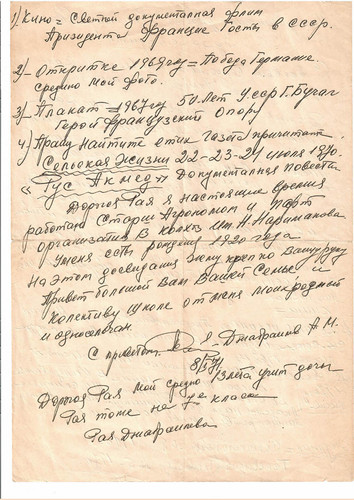 1) Кино = Светной документалная филм
Призидента Францие Гость в СССР.
2) Открытке 1969 году = Победа Германие.
средно мой фото.
3) Плакат = 1967 году 50 лет У.сср Г. Бучаг
Герой Французский Опору
4) Прашу найтите етих газета прочитате.
Сельская Жизни 22-23-24 июля 1970.
«Гус Ахмед» Документалная повести
Дорогая Рая я настояще время
работаю Старши Агрономом и парт
организатив В колхоз им. Н. Нариманова
уменя есть рождения 1920 года
На этом досведания жму крепко Вашу руку
Привет большой Вам Вашей Семье и
колективу школе от меня моих родный
и односельчан.
С приветом. А. М.
8/
Дорогая Рая мой средно 13 лета учит дочь
Рая тоже на 7е класа
Рая